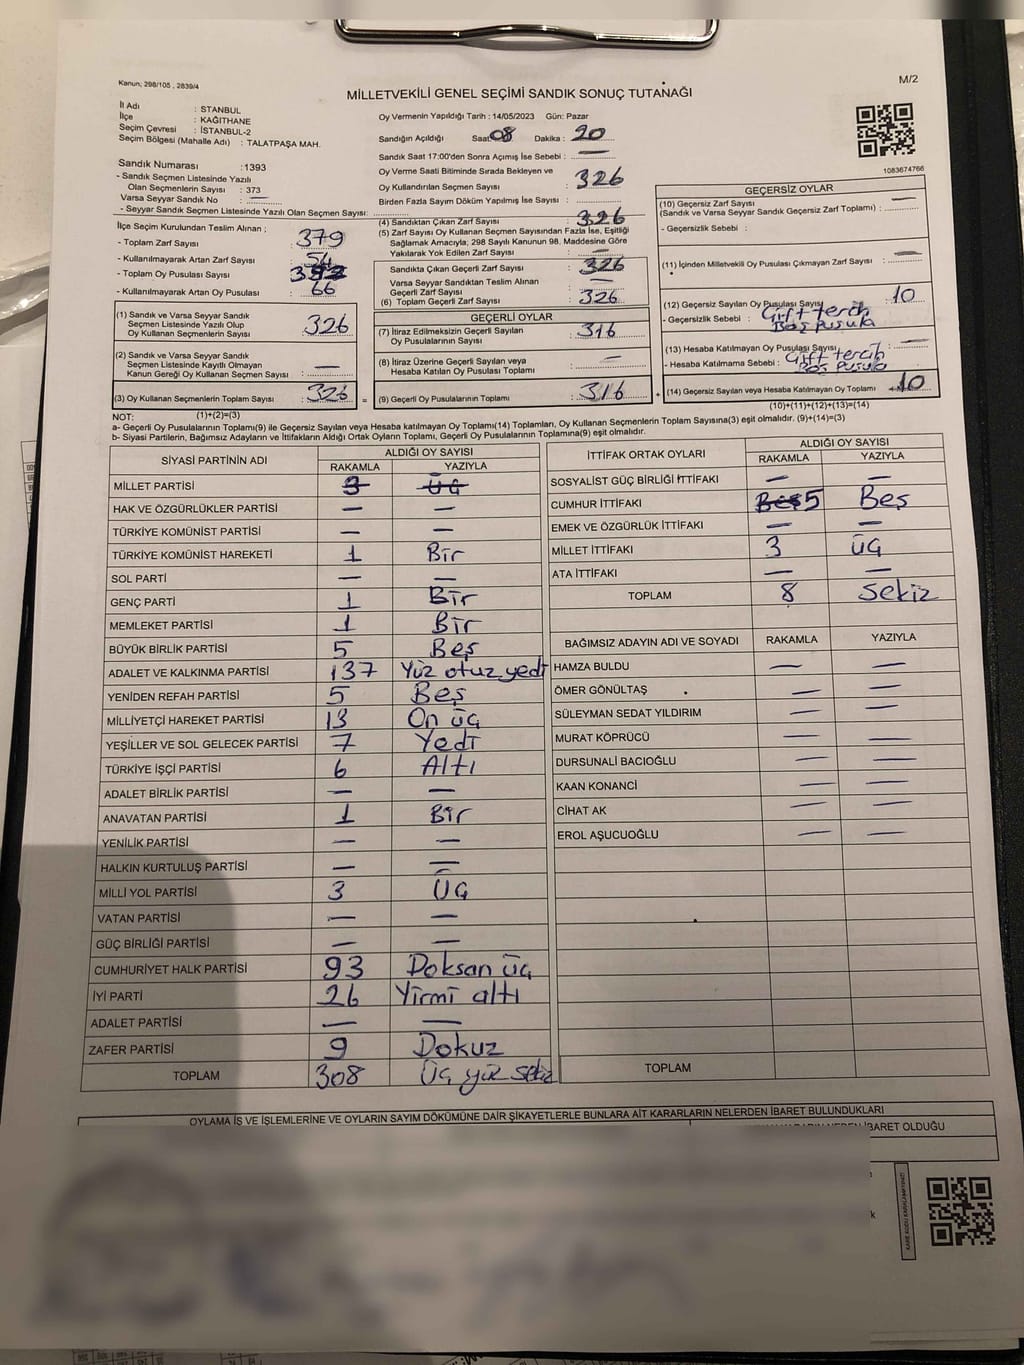 Kanun; 298/105 , 2839/4
M/2
MİLLETVEKİLİ GENEL SEÇİMİ SANDIK SONUÇ TUTANAĞI
İl Adı : İSTANBUL
İlçe : KAĞITHANE
Seçim Çevresi : İSTANBUL-2
Seçim Bölgesi (Mahalle Adı) : TALATPAŞA MAH.
Sandık Numarası : 1393
- Sandık Seçmen Listesinde Yazılı
Olan Seçmenlerin Sayısı : 373
Varsa Seyyar Sandık No : —
- Seyyar Sandık Seçmen Listesinde Yazılı Olan Seçmen Sayısı:
İlçe Seçim Kurulundan Teslim Alınan ;
- Toplam Zarf Sayısı : 379
- Kullanılmayarak Artan Zarf Sayısı : 54
- Toplam Oy Pusulası Sayısı :
- Kullanılmayarak Artan Oy Pusulası : 66
(1) Sandık ve Varsa Seyyar Sandık
Seçmen Listesinde Yazılı Olup
Oy Kullanan Seçmenlerin Sayısı : 326
(2) Sandık ve Varsa Seyyar Sandık
Seçmen Listesinde Kayıtlı Olmayan
Kanun Gereği Oy Kullanan Seçmen Sayısı : —
(3) Oy Kullanan Seçmenlerin Toplam Sayısı : 326 =
Oy Vermenin Yapıldığı Tarih : 14/05/2023 Gün: Pazar
Sandığın Açıldığı Saat: 08 Dakika : 20
Sandık Saat 17:00'den Sonra Açımış İse Sebebi : —
Oy Verme Saati Bitiminde Sırada Bekleyen ve
Oy Kullandırılan Seçmen Sayısı : 326
Birden Fazla Sayım Döküm Yapılmış İse Sayısı :
(4) Sandıktan Çıkan Zarf Sayısı : 326
(5) Zarf Sayısı Oy Kullanan Seçmen Sayısından Fazla İse, Eşitliği
Sağlamak Amacıyla; 298 Sayılı Kanunun 98. Maddesine Göre
Yakılarak Yok Edilen Zarf Sayısı : —
Sandıkta Çıkan Geçerli Zarf Sayısı : 326
Varsa Seyyar Sandıktan Teslim Alınan
Geçerli Zarf Sayısı : —
(6) Toplam Geçerli Zarf Sayısı : 326
GEÇERLİ OYLAR
(7) İtiraz Edilmeksizin Geçerli Sayılan
Oy Pusulalarının Sayısı : 316
(8) İtiraz Üzerine Geçerli Sayılan veya
Hesaba Katılan Oy Pusulası Toplamı : —
(9) Geçerli Oy Pusulalarının Toplamı : 316 +
1083674766
GEÇERSİZ OYLAR
(10) Geçersiz Zarf Sayısı
(Sandık ve Varsa Seyyar Sandık Geçersiz Zarf Toplamı) : —
- Geçersizlik Sebebi :
(11) İçinden Milletvekili Oy Pusulası Çıkmayan Zarf Sayısı : —
(12) Geçersiz Sayılan Oy Pusulası Sayısı : 10
- Geçersizlik Sebebi : Çift tercih
Boş pusula
(13) Hesaba Katılmayan Oy Pusulası Sayısı : —
- Hesaba Katılmama Sebebi : Çift tercih
Boş pusula
(14) Geçersiz Sayılan veya Hesaba Katılmayan Oy Toplamı : 10
NOT: (1)+(2)=(3)
(10)+(11)+(12)+(13)=(14)
a- Geçerli Oy Pusulalarının Toplamı(9) ile Geçersiz Sayılan veya Hesaba katılmayan Oy Toplamı(14) Toplamları, Oy Kullanan Seçmenlerin Toplam Sayısına(3) eşit olmalıdır. (9)+(14)=(3)
b- Siyasi Partilerin, Bağımsız Adayların ve İttifakların Aldığı Ortak Oyların Toplamı, Geçerli Oy Pusulalarının Toplamına(9) eşit olmalıdır.
SİYASİ PARTİNİN ADI
ALDIĞI OY SAYISI
RAKAMLA YAZIYLA
MİLLET PARTİSİ 3 Üç
HAK VE ÖZGÜRLÜKLER PARTİSİ — —
TÜRKİYE KOMÜNİST PARTİSİ — —
TÜRKİYE KOMÜNİST HAREKETİ 1 Bir
SOL PARTİ — —
GENÇ PARTİ 1 Bir
MEMLEKET PARTİSİ 1 Bir
BÜYÜK BİRLİK PARTİSİ 5 Beş
ADALET VE KALKINMA PARTİSİ 137 Yüz otuz yedi
YENİDEN REFAH PARTİSİ 5 Beş
MİLLİYETÇİ HAREKET PARTİSİ 13 On üç
YEŞİLLER VE SOL GELECEK PARTİSİ 7 Yedi
TÜRKİYE İŞÇİ PARTİSİ 6 Altı
ADALET BİRLİK PARTİSİ — —
ANAVATAN PARTİSİ 1 Bir
YENİLİK PARTİSİ — —
HALKIN KURTULUŞ PARTİSİ — —
MİLLİ YOL PARTİSİ 3 Üç
VATAN PARTİSİ — —
GÜÇ BİRLİĞİ PARTİSİ — —
CUMHURİYET HALK PARTİSİ 93 Doksan üç
İYİ PARTİ 26 Yirmi altı
ADALET PARTİSİ — —
ZAFER PARTİSİ 9 Dokuz
TOPLAM 308 Üç yüz sekiz
İTTİFAK ORTAK OYLARI
ALDIĞI OY SAYISI
RAKAMLA YAZIYLA
SOSYALİST GÜÇ BİRLİĞİ İTTİFAKI — —
CUMHUR İTTİFAKI Beş 5 Beş
EMEK VE ÖZGÜRLÜK İTTİFAKI — —
MİLLET İTTİFAKI 3 üç
ATA İTTİFAKI — —
TOPLAM 8 sekiz
BAĞIMSIZ ADAYIN ADI VE SOYADI RAKAMLA YAZIYLA
HAMZA BULDU — —
ÖMER GÖNÜLTAŞ — —
SÜLEYMAN SEDAT YILDIRIM — —
MURAT KÖPRÜCÜ — —
DURSUNALİ BACIOĞLU — —
KAAN KONANCİ — —
CİHAT AK — —
EROL AŞUCUOĞLU — —
TOPLAM
OYLAMA İŞ VE İŞLEMLERİNE VE OYLARIN SAYIM DÖKÜMÜNE DAİR ŞİKAYETLERLE BUNLARA AİT KARARLARIN NELERDEN İBARET BULUNDUKLARI
İBARET OLDUĞU